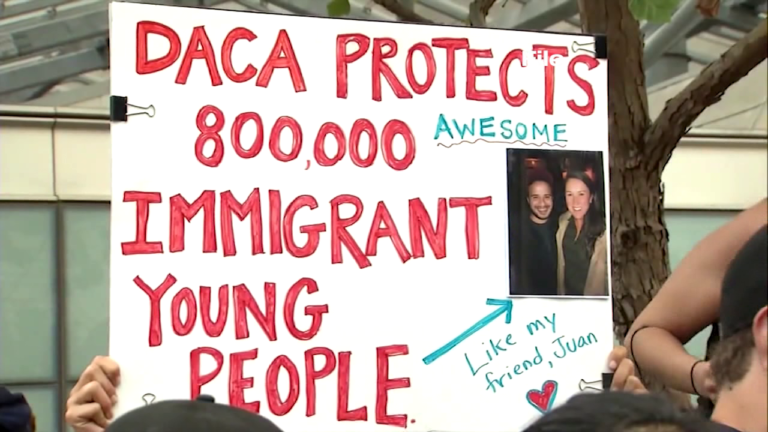 DACA PROTECTS
File
800,000
AWESOME
IMMIGRANT
YOUNG
PEOPLE.
Like my
friend, Juan